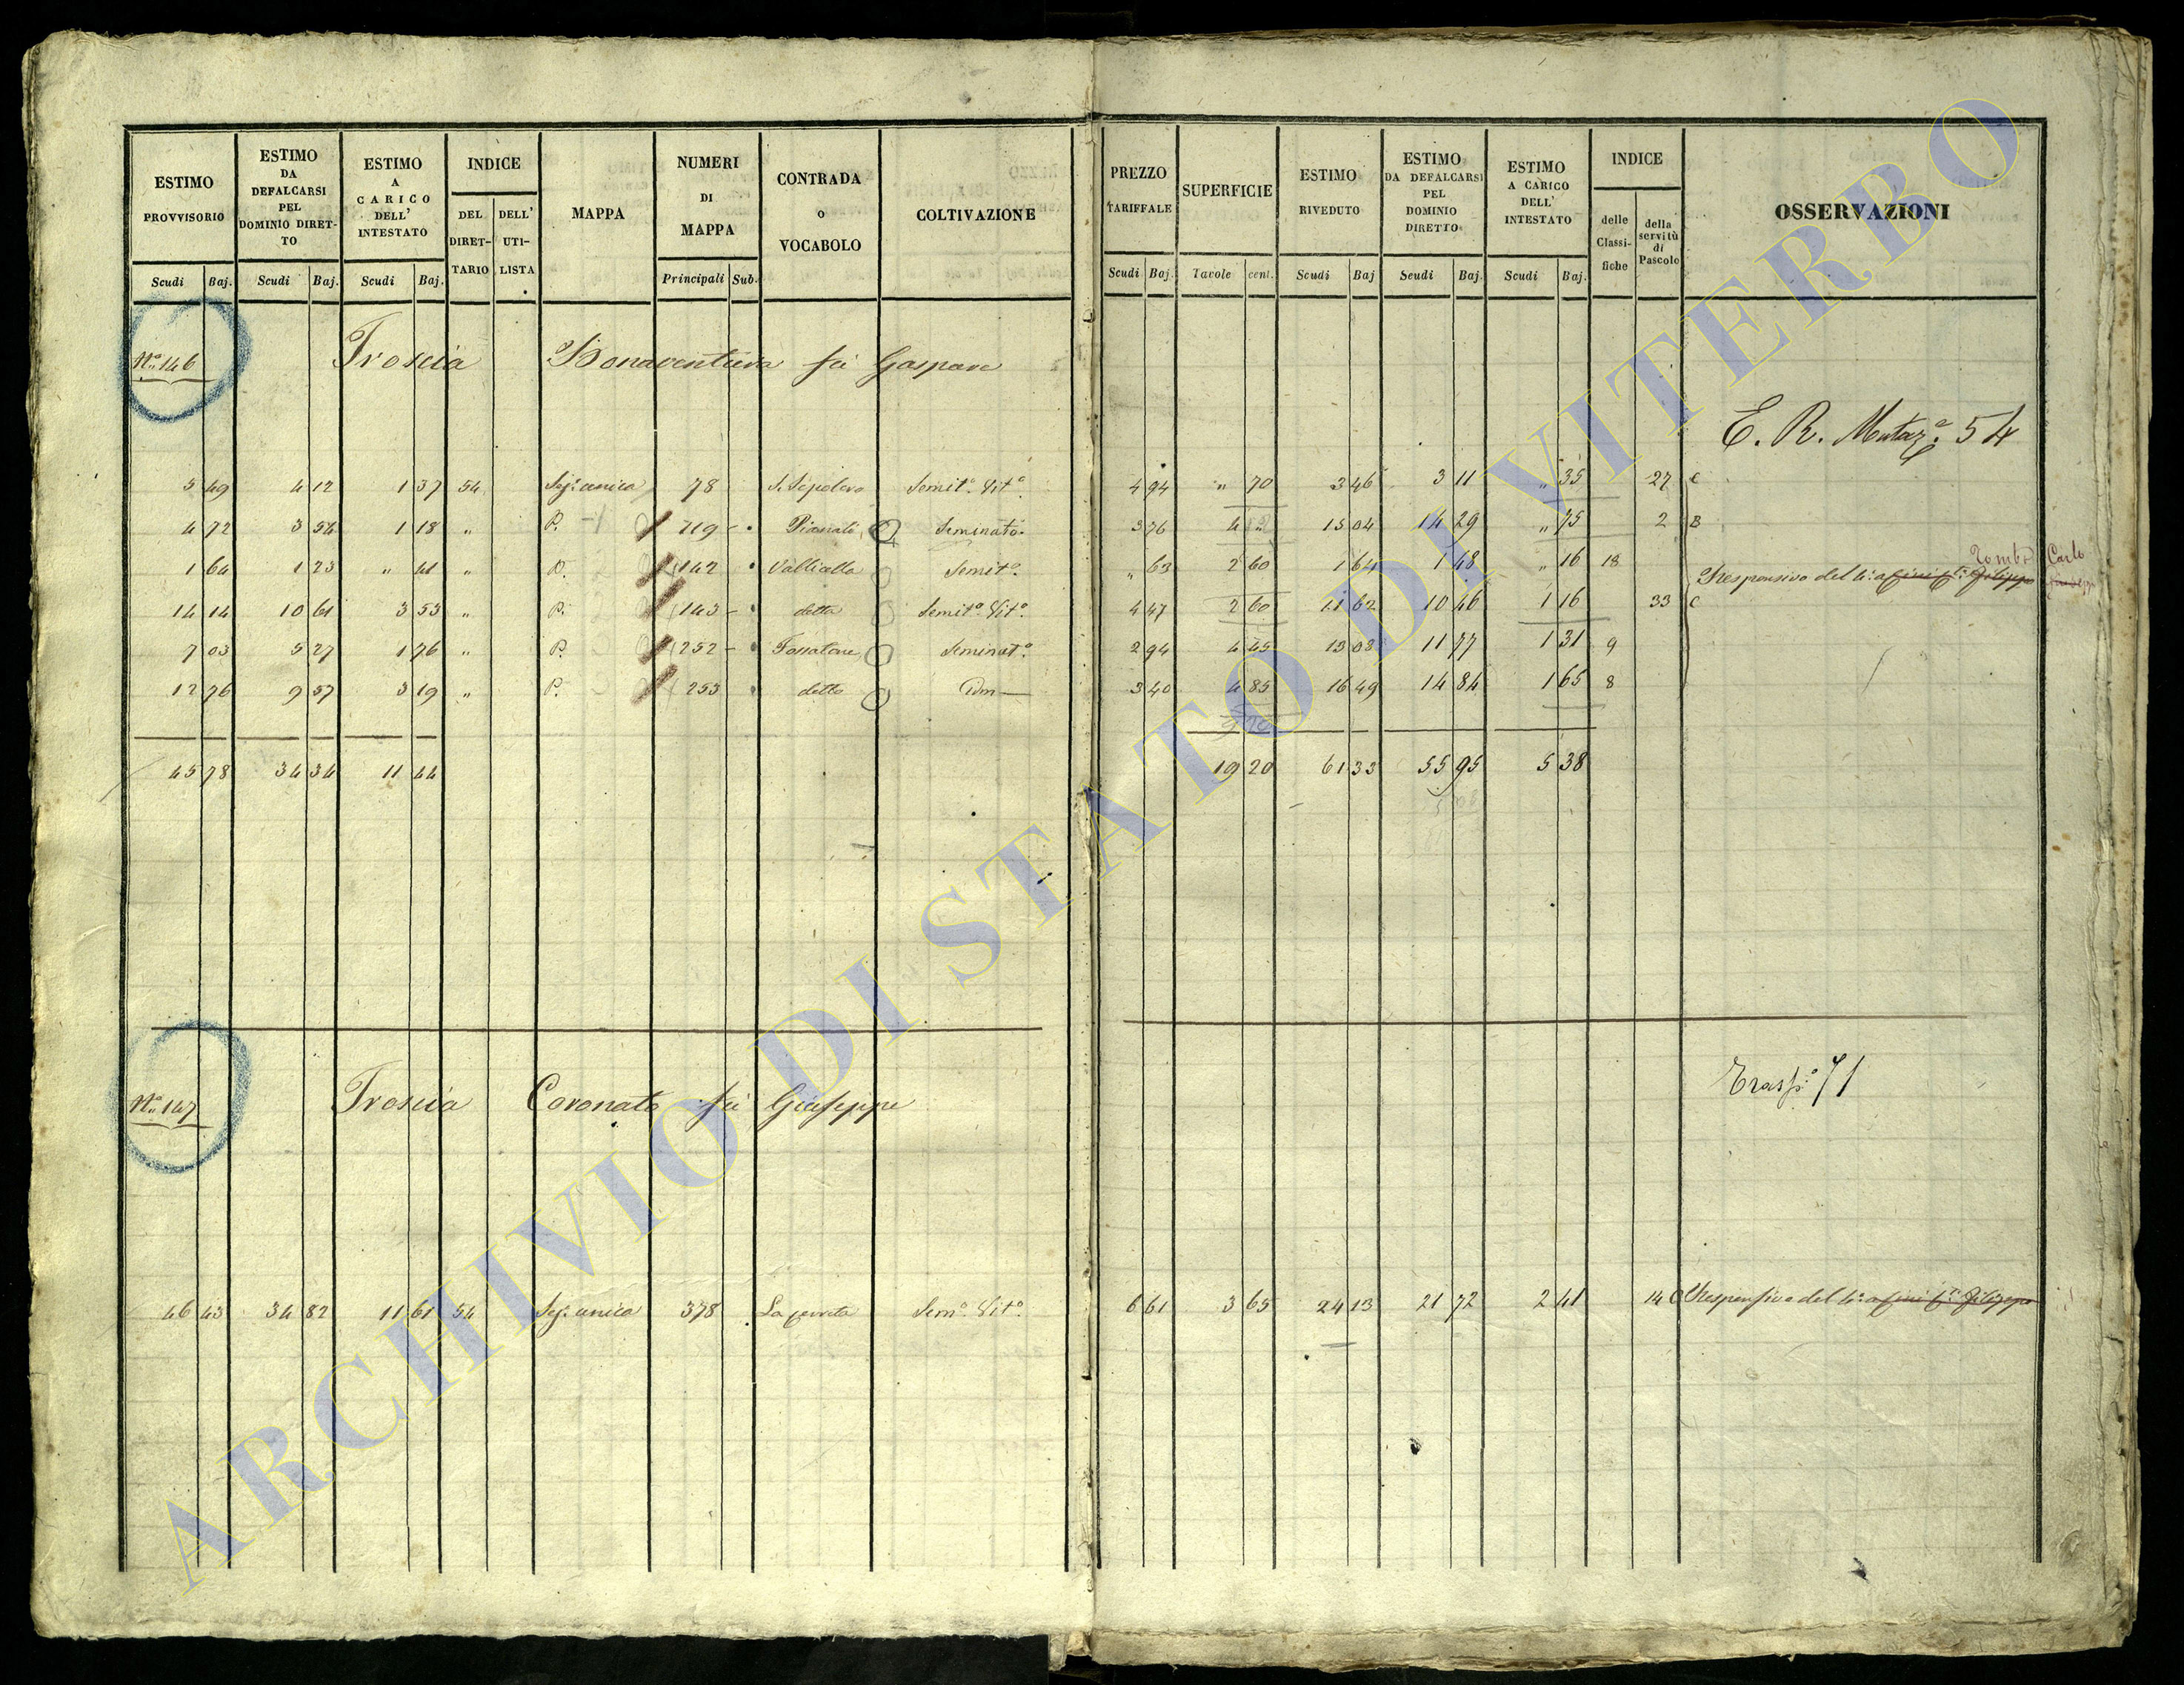 ESTIMO PROVVISORIO | ESTIMO DA DEFALCARSI PEL DOMINIO DIRETTO | ESTIMO A CARICO DELL' INTESTATO | INDICE | MAPPA | NUMERI DI MAPPA | CONTRADA O VOCABOLO | COLTIVAZIONE | PREZZO TARIFFALE | SUPERFICIE | ESTIMO RIVEDUTO | ESTIMO DA DEFALCARSI PEL DOMINIO DIRETTO | ESTIMO A CARICO DELL' INTESTATO | INDICE | OSSERVAZIONI
DEL DIRETTARIO | DELL' UTILISTA | delle Classifiche | della servitù di Pascolo
Scudi | Baj. | Scudi | Baj. | Scudi | Baj. | Principali | Sub. | Scudi | Baj. | Tavole | cent. | Scudi | Baj | Scudi | Baj. | Scudi | Baj.
N.° 146 Troscia Bonaventura fu Gaspare
E. R. Mutaz.e 54
5 49 | 4 12 | 1 37 | 54 | Sez: unica | 78 | S. Sepolcro | Semit.o Vit.o | 4 94 | " 70 | 3 46 | 3 11 | " 35 | 27 | C
4 72 | 3 54 | 1 18 | " | P. | 119 | Pianali | Seminato | 3 76 | 4 " | 15 04 | 14 29 | " 75 | 2 | B
Carlo
1 64 | 1 23 | " 41 | " | P. | 142 | Vallicella | Semit.o | " 63 | 2 60 | 1 64 | 1 48 | " 16 | 18
Responsivo del 4.a
14 14 | 10 61 | 3 53 | " | P. | 143 | detta | Semit.o Vit.o | 4 47 | 2 60 | 11 62 | 10 46 | 1 16 | 33 | C
7 03 | 5 27 | 1 76 | " | P. | 252 | Fossatone | Seminat.o | 2 94 | 4 45 | 13 08 | 11 77 | 1 31 | 9
12 76 | 9 57 | 3 19 | " | P. | 253 | detto | Idm | 3 40 | 4 85 | 16 49 | 14 84 | 1 65 | 8
45 78 | 34 34 | 11 44 | 19 20 | 61 33 | 55 95 | 5 38
N.° 147 Troscia Coronato fu Giuseppe
Trasp.o 71
46 43 | 34 82 | 11 61 | 54 | Sez: unica | 378 | Sem.o Vit.o | 6 61 | 3 65 | 24 13 | 21 72 | 2 41 | 14 | C | Responsivo del 4.a
ARCHIVIO DI STATO DI VITERBO